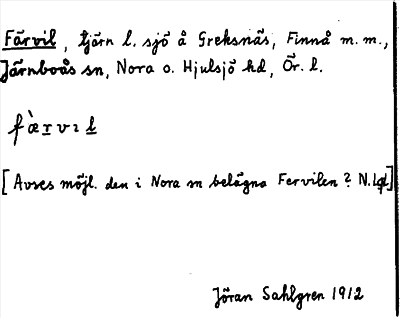 Färvil, tjärn l. sjö å Greksnäs, Finnå m. m.,
Järnboås sn, Nora o. Hjulsjö hd, Ör. l.
fæ̀rvıl
[Avses möjl. den i Nora sn belägna Fervilen? N.Lgl.]
Jöran Sahlgren 1912